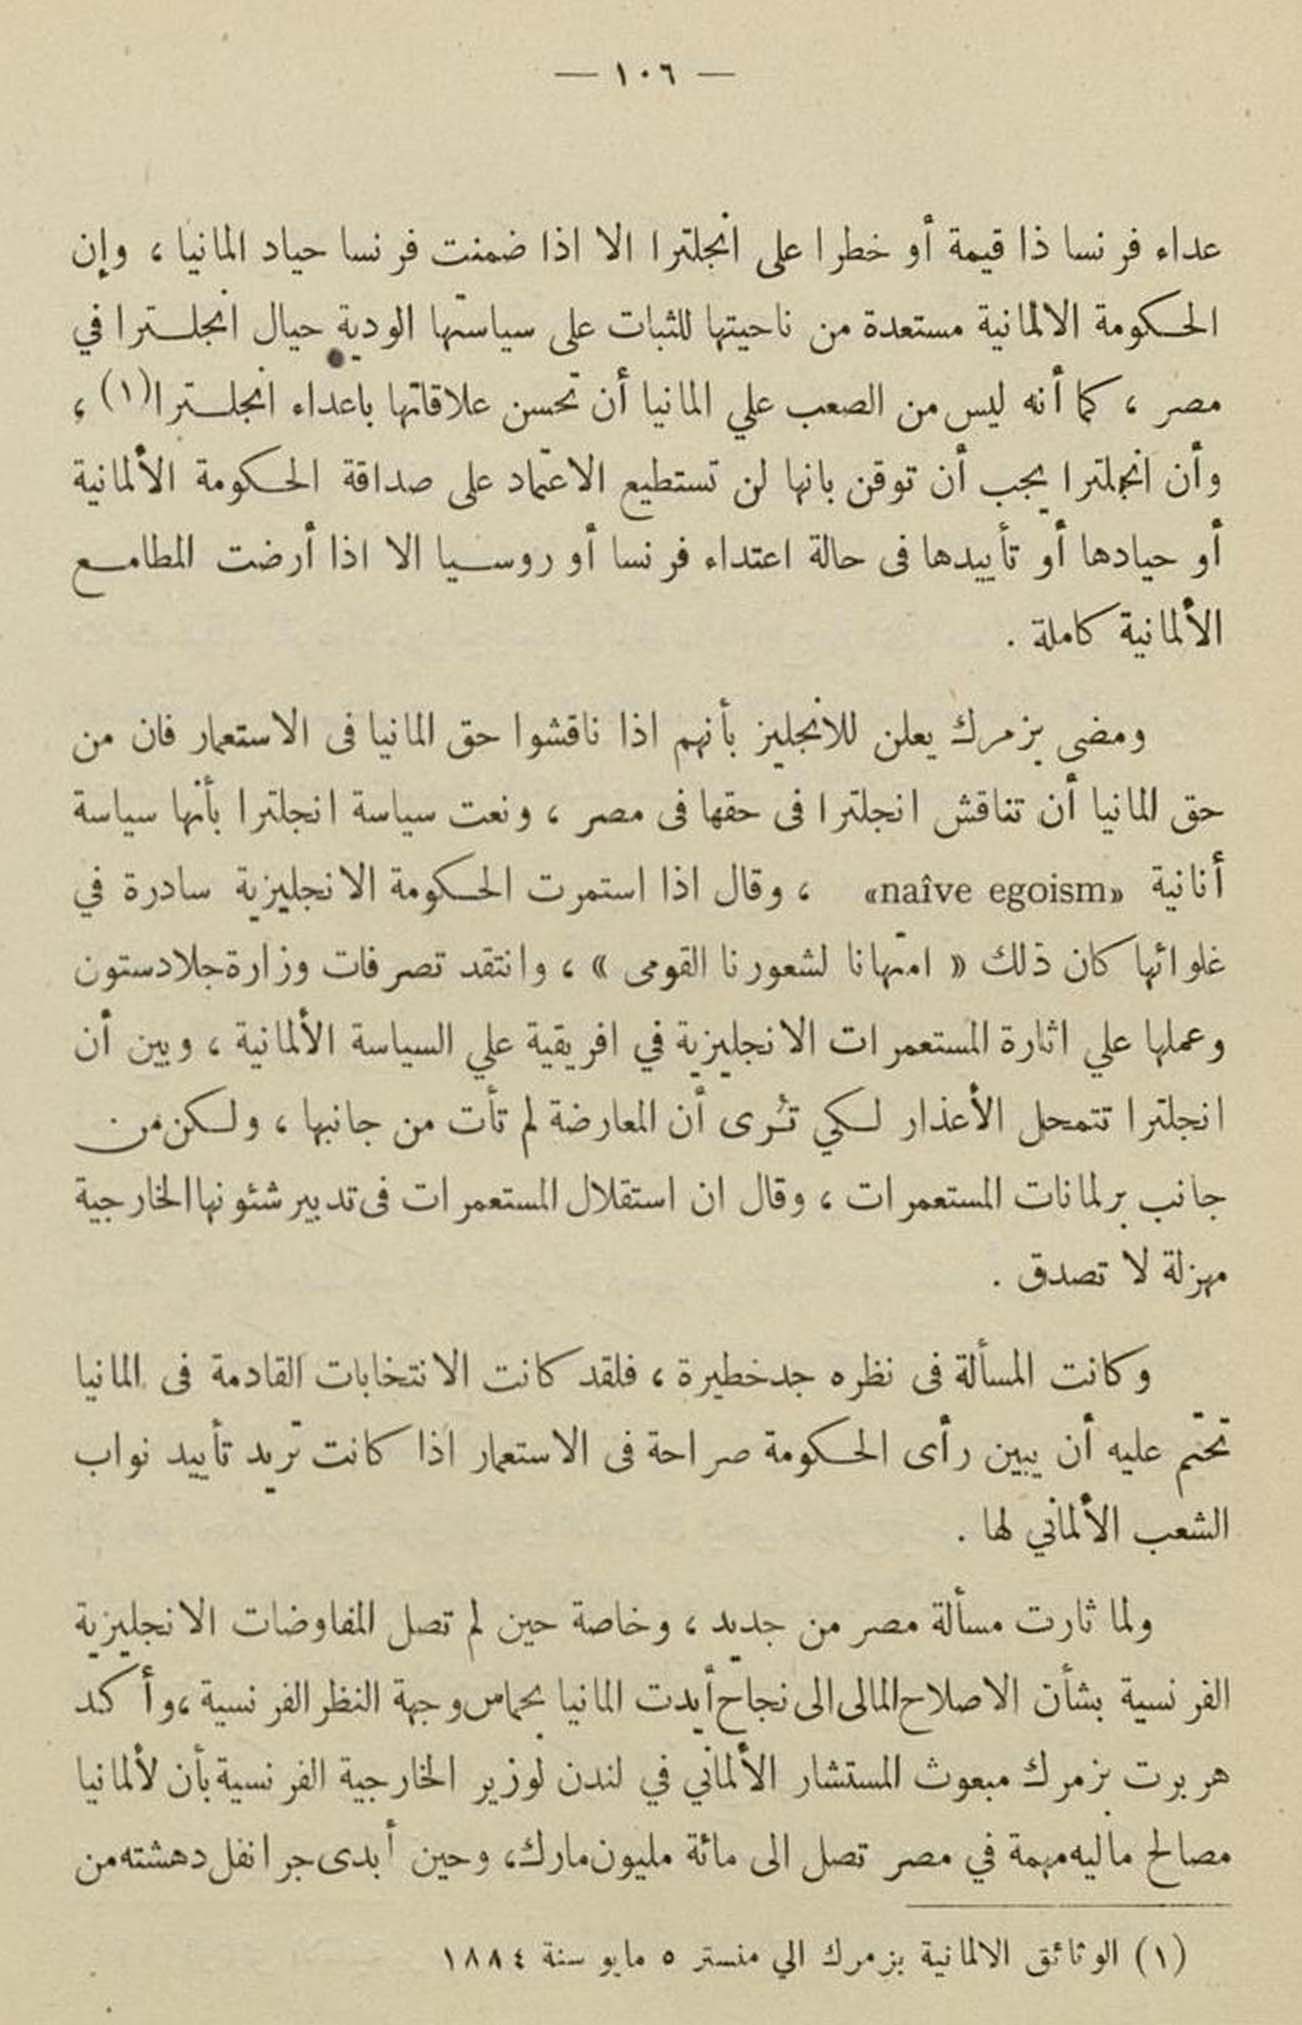 — ١٠٦ —
عداء فرنسا ذا قيمة أو خطرا على انجلترا الا اذا ضمنت فرنسا حياد المانيا ، وإن
الحكومة الالمانية مستعدة من ناحيتها للثبات على سياستها الودية حيال انجلترا في
مصر ، كما أنه ليس من الصعب علي المانيا أن تحسن علاقاتها باعداء انجلترا(١) ،
وأن انجلترا يجب أن توقن بانها لن تستطيع الاعتماد على صداقة الحكومة الألمانية
أو حيادها أو تأييدها فى حالة اعتداء فرنسا أو روسيا الا اذا أرضت المطامع
الألمانية كاملة .
ومضى بزمرك يعلن للانجليز بأنهم اذا ناقشوا حق المانيا فى الاستعمار فان من
حق المانيا أن تناقش انجلترا فى حقها فى مصر ، ونعت سياسة انجلترا بأنها سياسة
أنانية «naîve egoism» ، وقال اذا استمرت الحكومة الانجليزية سادرة في
غلوائها كان ذلك « امتهانا لشعورنا القومى » ، وانتقد تصرفات وزارة جلادستون
وعملها علي اثارة المستعمرات الانجليزية في افريقية علي السياسة الألمانية ، وبين أن
انجلترا تتمحل الأعذار لكي تُرى أن المعارضة لم تأت من جانبها ، ولكن من
جانب برلمانات المستعمرات ، وقال ان استقلال المستعمرات فى تدبير شئونها الخارجية
مهزلة لا تصدق .
وكانت المسألة فى نظره جد خطيرة ، فلقد كانت الانتخابات القادمة فى المانيا
تحتم عليه أن يبين رأى الحكومة صراحة فى الاستعمار اذا كانت تريد تأييد نواب
الشعب الألماني لها .
ولما ثارت مسألة مصر من جديد ، وخاصة حين لم تصل المفاوضات الانجليزية
الفرنسية بشأن الاصلاح المالى الى نجاح أيدت المانيا بحماس وجهة النظر الفرنسية ، وأكد
هربرت بزمرك مبعوث المستشار الألماني في لندن لوزير الخارجية الفرنسية بأن لألمانيا
مصالح ماليه مهمة في مصر تصل الى مائة مليون مارك ، وحين أبدى جرانفل دهشته من
(١) الوثائق الالمانية بزمرك الي منستر ٥ مايو سنة ١٨٨٤